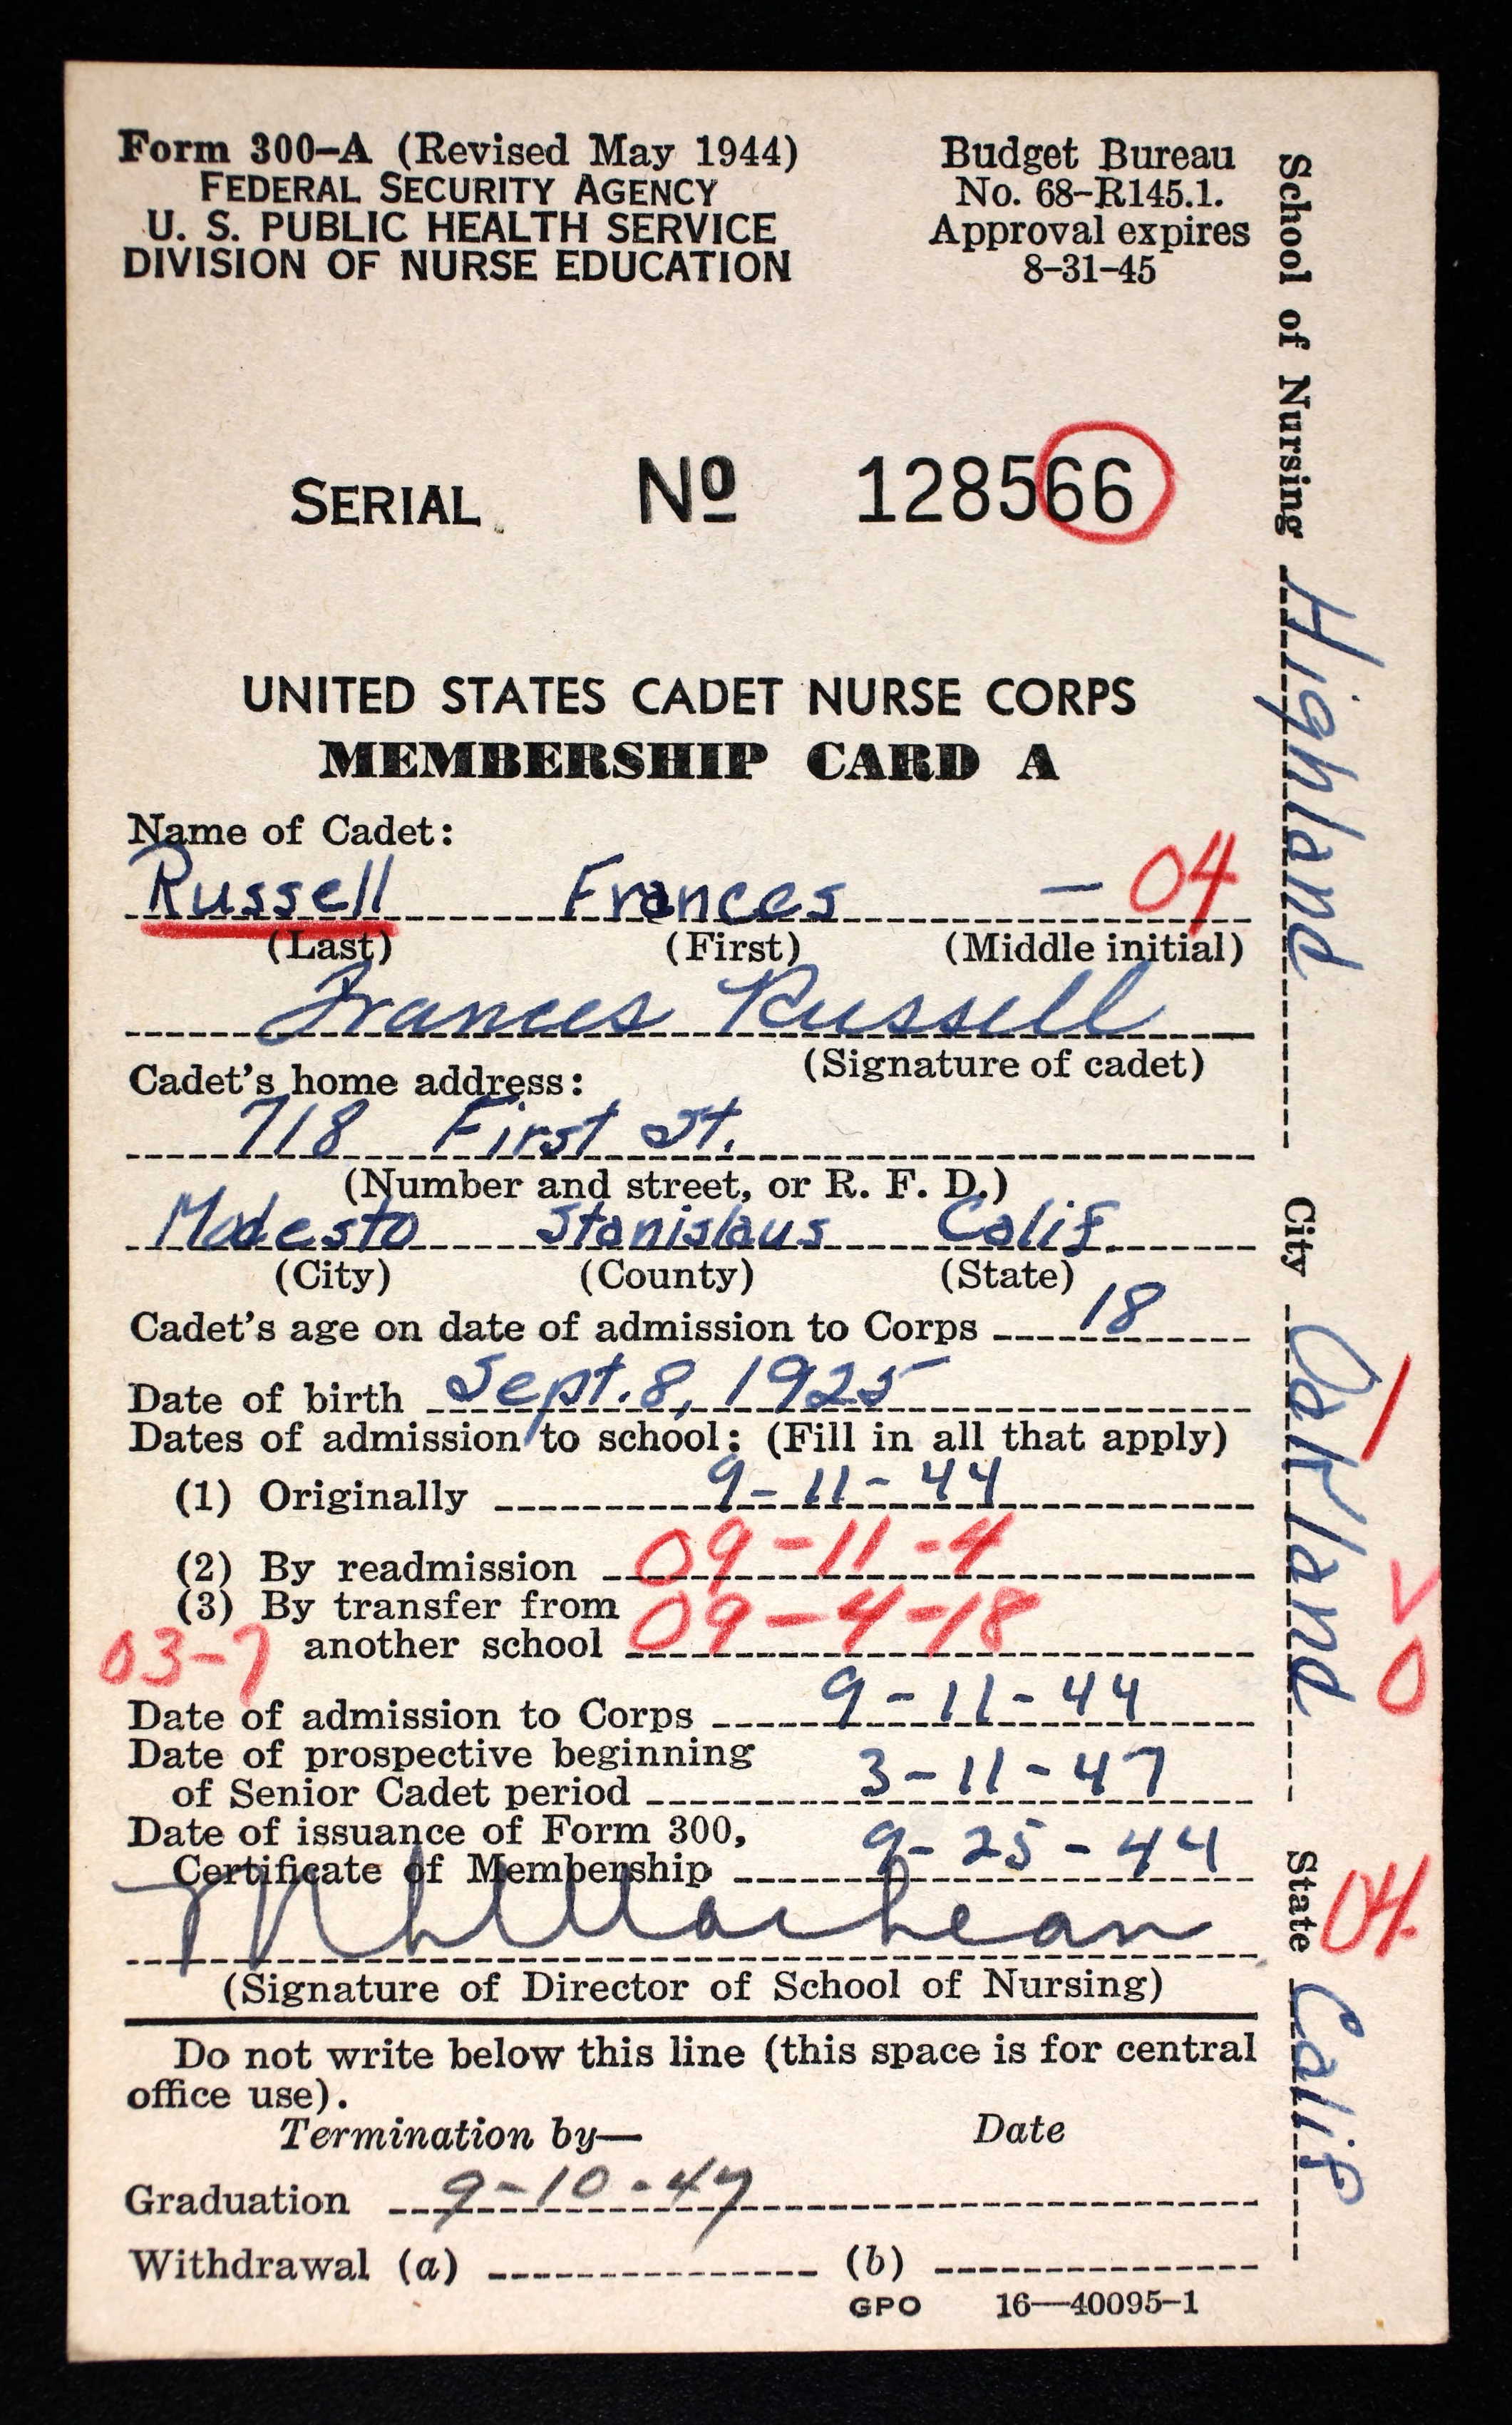 Form 300–A (Revised May 1944)
FEDERAL SECURITY AGENCY
U. S. PUBLIC HEALTH SERVICE
DIVISION OF NURSE EDUCATION
Budget Bureau
No. 68–R145.1.
Approval expires
8–31–45
SERIAL No 128566
UNITED STATES CADET NURSE CORPS
MEMBERSHIP CARD A
Name of Cadet:
Russell Frances — 04
(Last) (First) (Middle initial)
Frances Russell
(Signature of cadet)
Cadet's home address:
718 First St.
(Number and street, or R. F. D.)
Modesto Stanislaus Calif.
(City) (County) (State)
Cadet's age on date of admission to Corps 18
Date of birth Sept. 8, 1925
Dates of admission to school: (Fill in all that apply)
(1) Originally 9-11-44
(2) By readmission 09-11-4
(3) By transfer from
another school 09-4-18
03-7
Date of admission to Corps 9-11-44
Date of prospective beginning
of Senior Cadet period 3-11-47
Date of issuance of Form 300,
Certificate of Membership 9-25-44
(Signature of Director of School of Nursing)
Do not write below this line (this space is for central
office use).
Termination by— Date
Graduation 9-10-47
Withdrawal (a) (b)
GPO 16—40095-1
School of Nursing Highland City Oakland State Calif
1
V
0
04